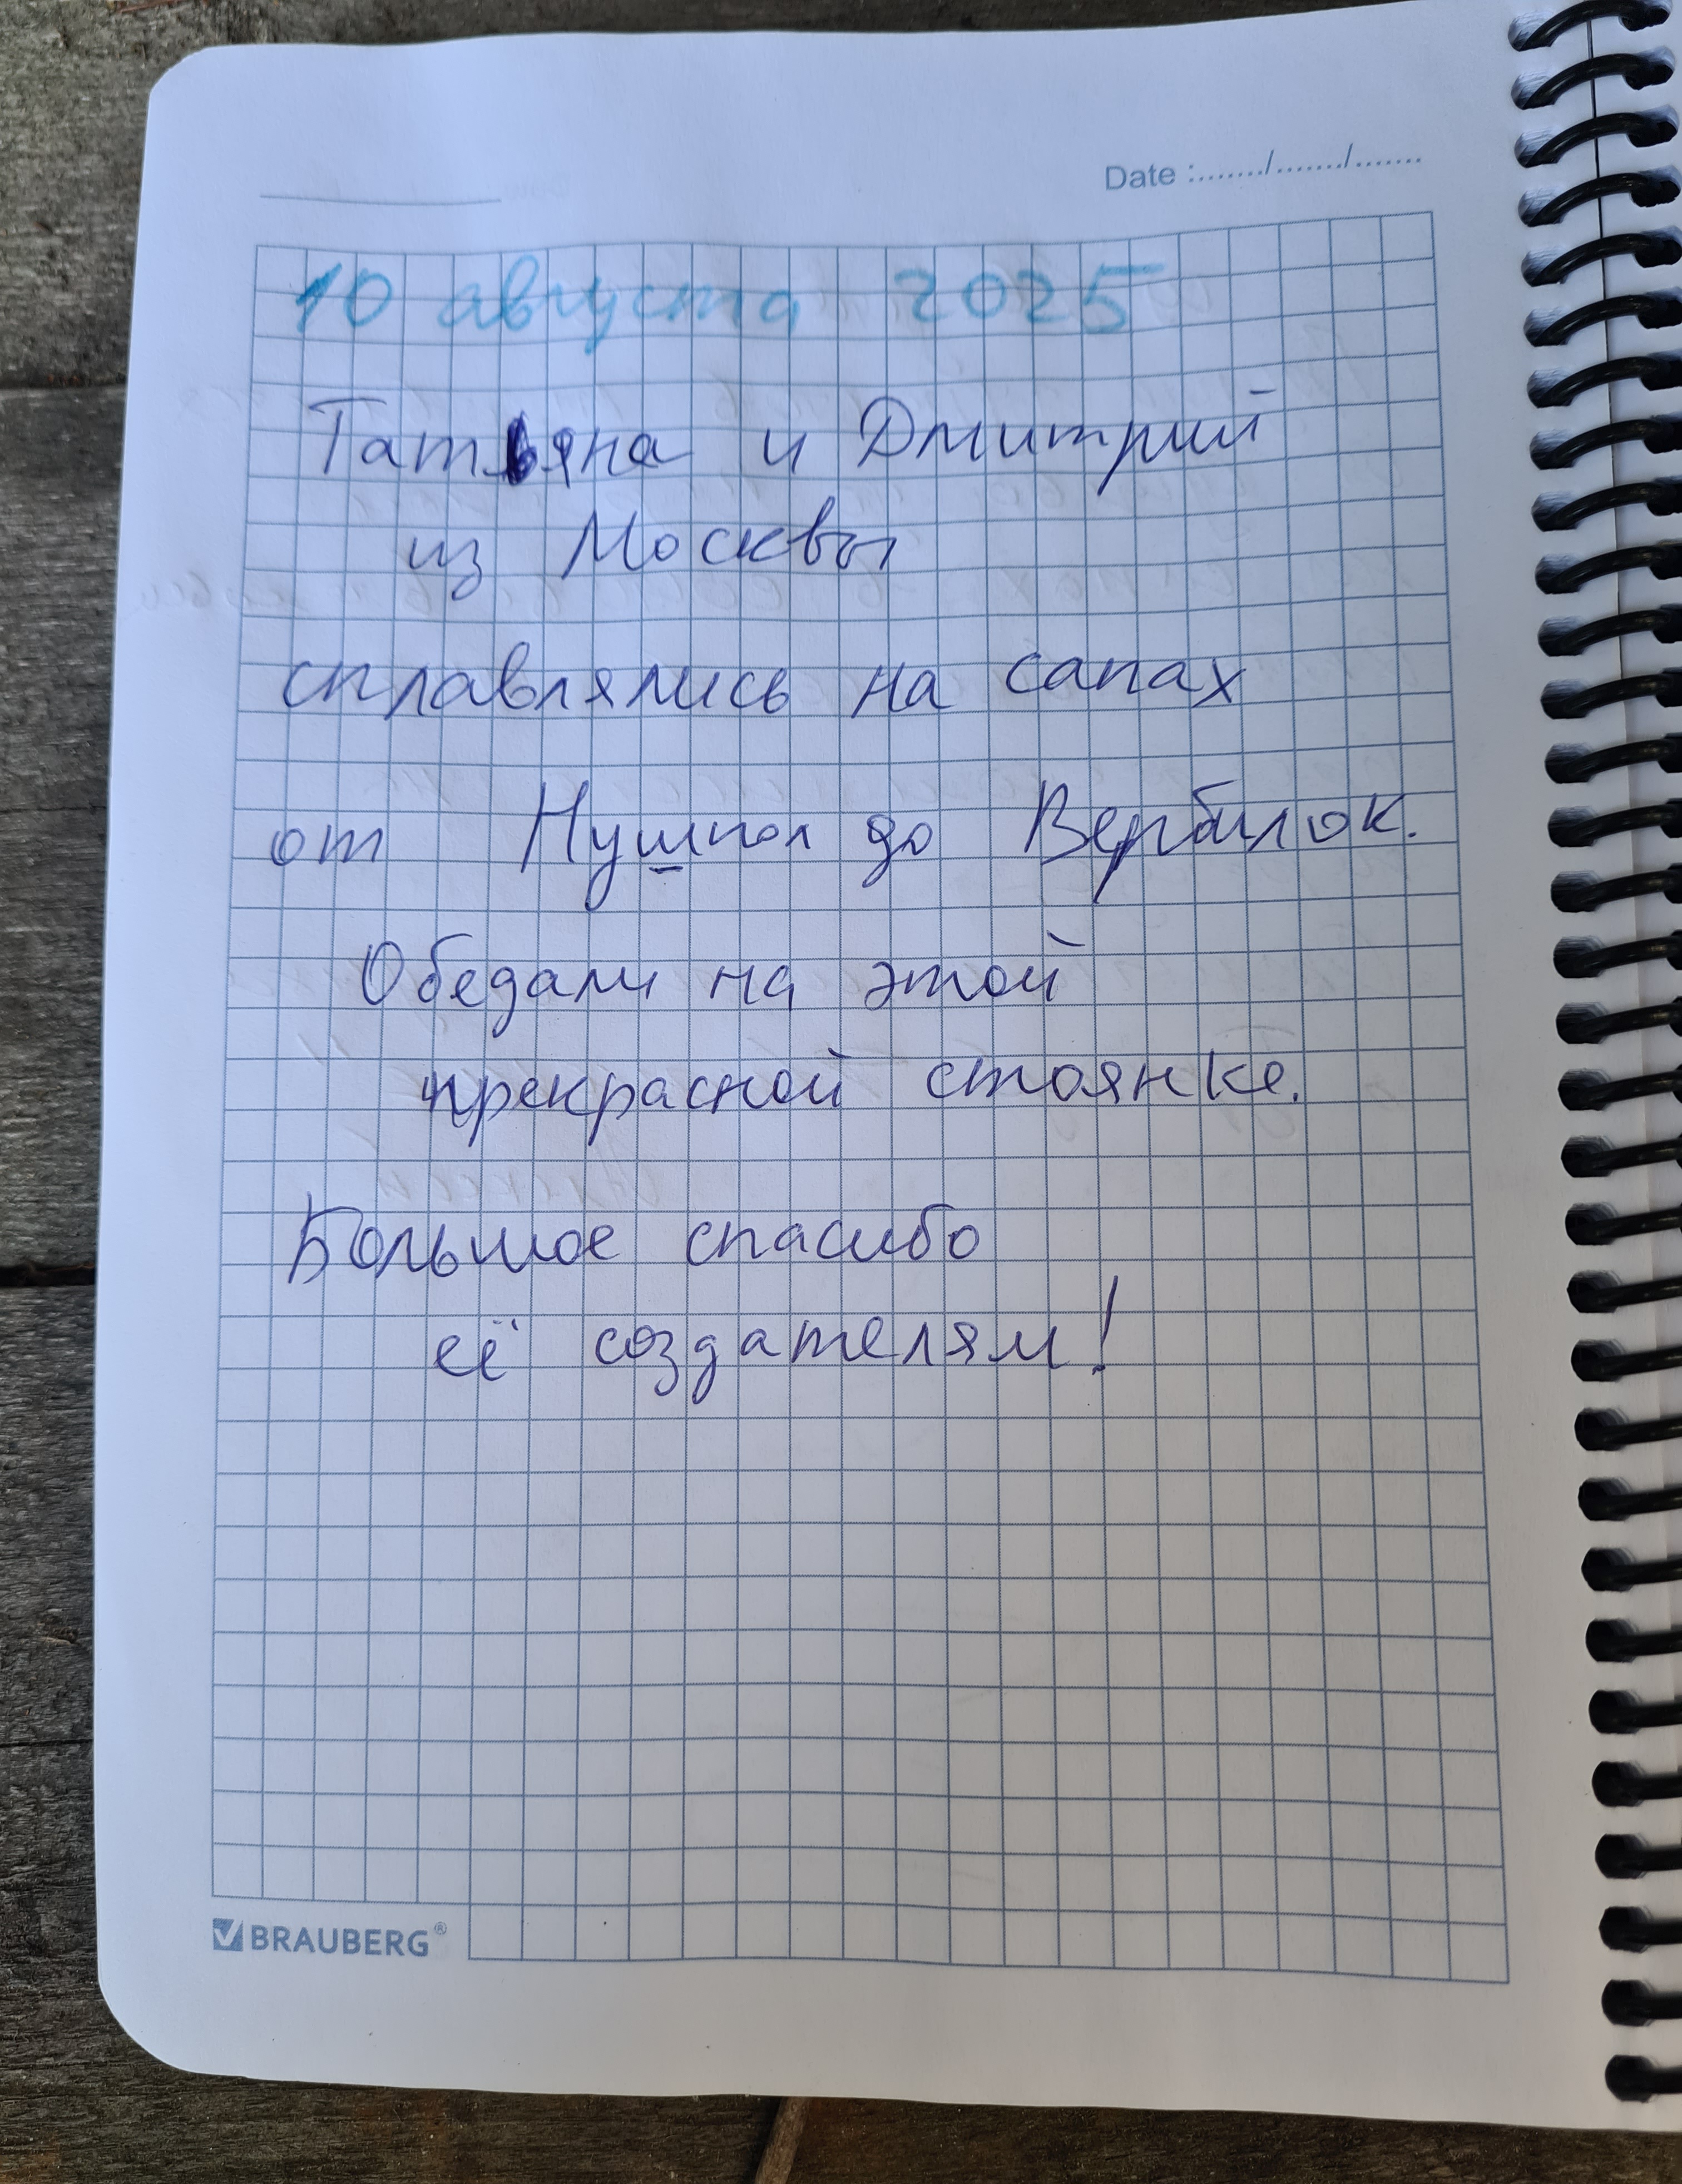 Date :......./......./.......
10 августа 2025
Татьяна и Дмитрий
из Москвы
сплавлялись на сапах
от Нушпол до Вербилок.
Обедали на этой
прекрасной стоянке.
Большое спасибо
её создателям!
BRAUBERG®